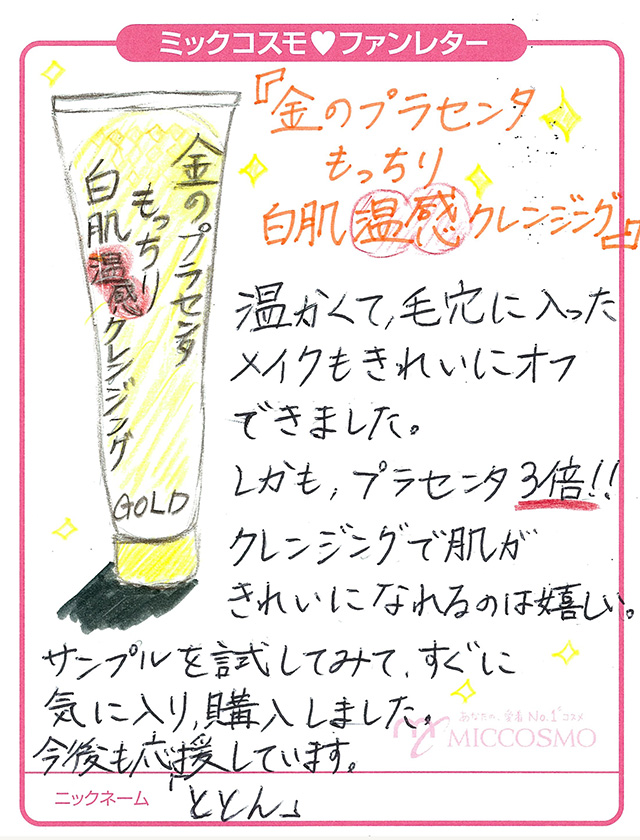 ミックコスモ♥ファンレター
『金のプラセンタ
もっちり
白肌温感クレンジング』
金のプラセンタ
もっちり
白肌温感クレンジング
GOLD
温かくて、毛穴に入った
メイクもきれいにオフ
できました。
しかも、プラセンタ3倍!!
クレンジングで肌が
きれいになれるのは嬉しい。
サンプルを試してみて、すぐに
気に入り、購入しました。
今後も応援しています。
あなたの、愛着No.1コスメ
MICCOSMO
ニックネーム 「ととん」